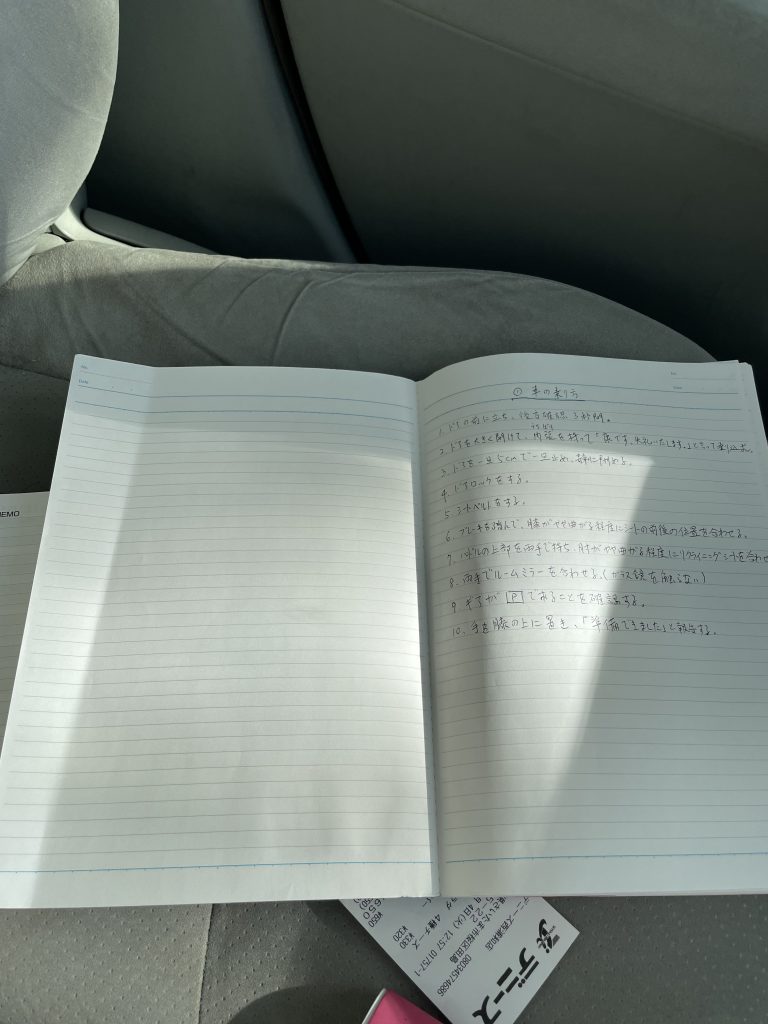 No.
Date
No.
Date
① 車の乗り方
1. ドアの前に立ち、後方確認 3秒間。
2. ドアを大きく開けて、内張を持って「 です。失礼いたします。」と言って乗り込む。
うちばり
3. ドアを一旦5cmで一旦止め、 閉める。
4. ドアロックをする。
5. シートベルトをする。
6. ブレーキを踏んで、膝がやや曲がる程度にシートの前後の位置を合わせる。
7. ハンドルの上部を両手で持ち、肘がやや曲がる程度にリクライニングシートを合わせ
8. 両手でルームミラーを合わせる。(ガラス鏡を触らない)
9. ギアが P であることを確認する。
10. 手を膝の上に置き、「準備できました」と報告する。
MEMO
デニーズ
デニーズ西浦和店
さいたま市桜区田島
08034574686
4日(火) 12:57 01757-1
4種チーズ
¥330
¥320
¥650